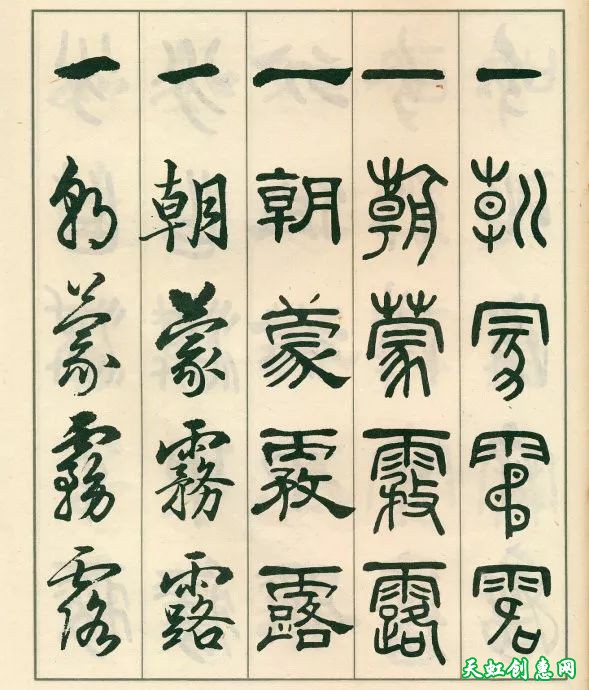 一朝蒙霧露
一朝蒙霧露
一朝蒙霧露
一朝蒙霧露
一朝蒙霧露
天虹创惠网